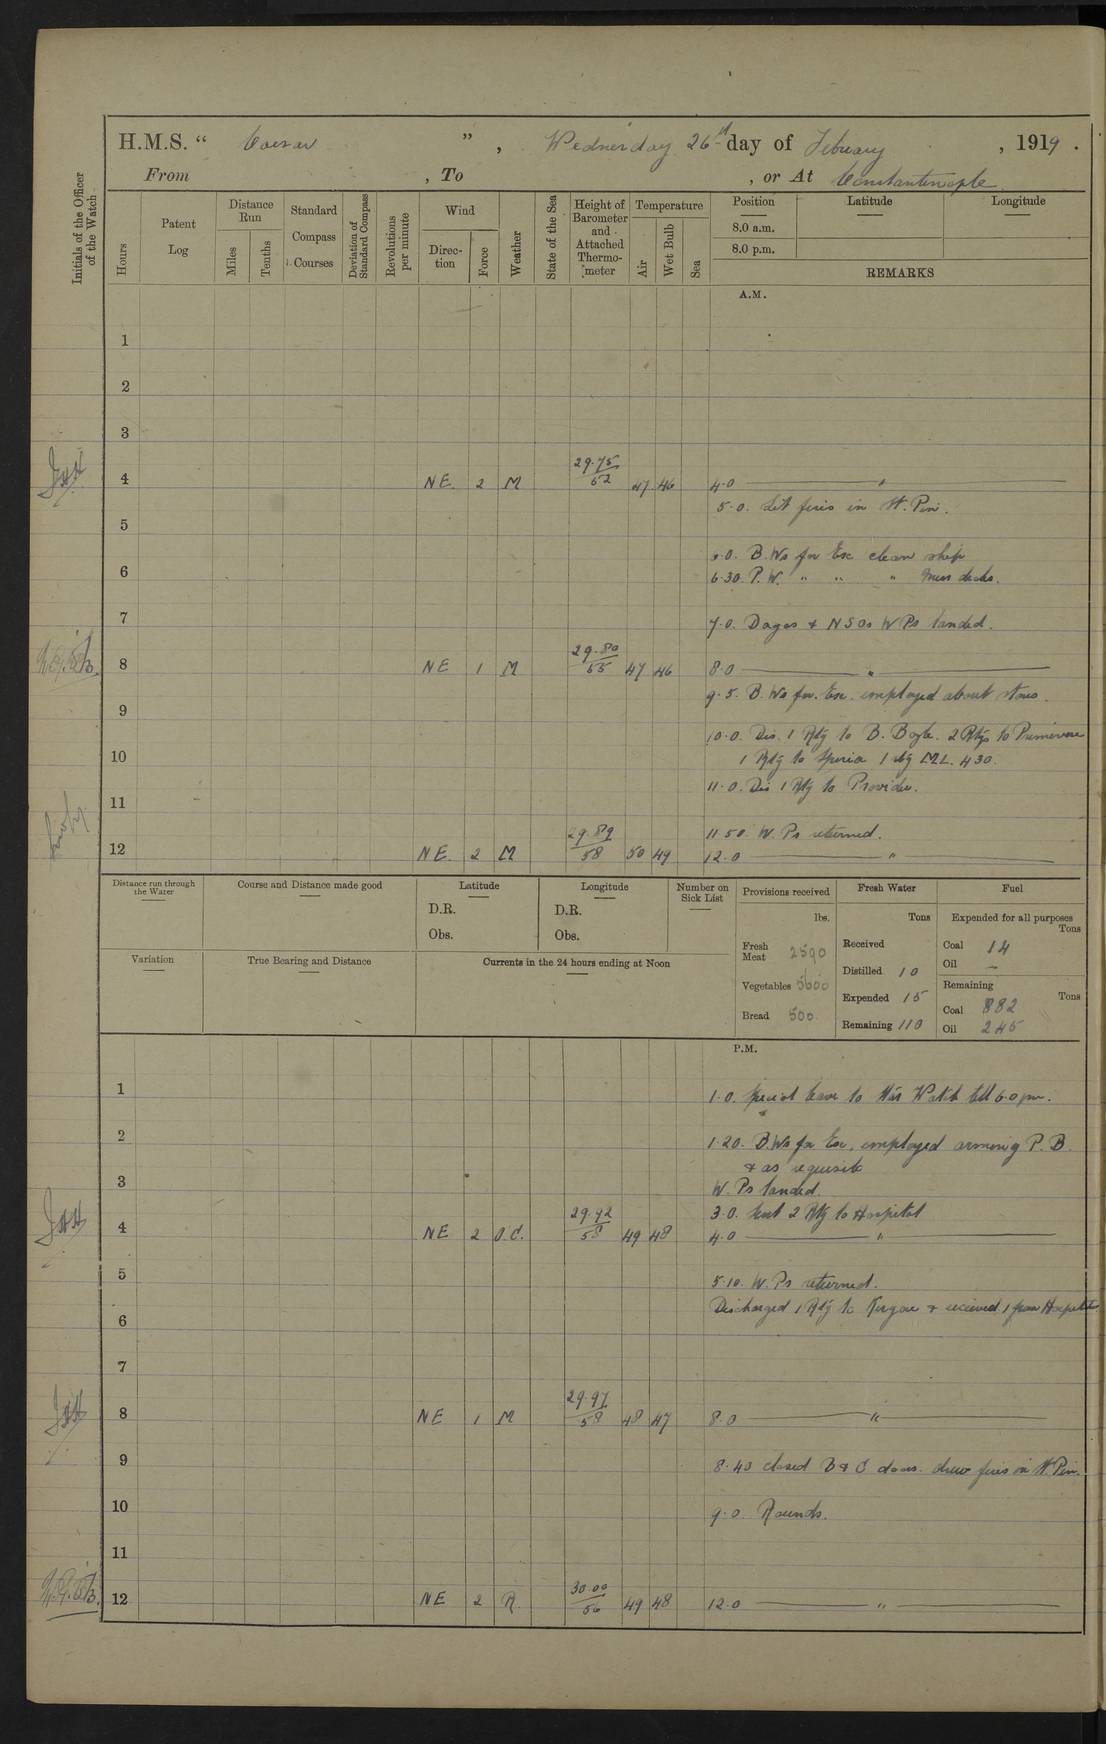 H.M.S. " Caesar ", Wednesday 26th day of February, 1919.
From , To , or At Constantinople
Initials of the Officer of the Watch
Hours
Patent Log
Distance Run
Miles
Tenths
Standard Compass Courses
Deviation of Standard Compass
Revolutions per minute
Wind
Direction
Force
Weather
State of the Sea
Height of Barometer and Attached Thermometer
Temperature
Air
Wet Bulb
Sea
Position
8.0 a.m.
8.0 p.m.
Latitude
Longitude
REMARKS
A.M.
1
2
3
4 NE. 2 M 29.75 52 47 46 4.0 ——— " ———
5.0. Lit fires in St. Pin.
5
6.0. B.Ws for Exc clean ship
6 6.30. P.W. " " " mess decks.
7 7.0. Dagos & NSOs WPs landed.
8 NE 1 M 29.80 55 47 46 8.0 ——— " ———
9.5. B.Ws for Exc. employed about stores.
9
10.0. Dis. 1 Rtg to B. Bogle. 2 Rtgs to Primerose
10 1 Rtg to Speria 1 rtg ML. 430.
11.0. Dis 1 Rtg to Provider.
11
11.50 W.Ps returned.
12 NE. 2 M 29.89 58 50 49 12.0 ——— " ———
Distance run through the Water
Course and Distance made good
Latitude
D.R.
Obs.
Longitude
D.R.
Obs.
Number on Sick List
Variation
True Bearing and Distance
Currents in the 24 hours ending at Noon
Provisions received
lbs.
Fresh Meat 2590
Vegetables 5600
Bread 500
Fresh Water
Tons
Received
Distilled 10
Expended 15
Remaining 110
Fuel
Expended for all purposes
Tons
Coal 14
Oil —
Remaining
Tons
Coal 882
Oil 245
P.M.
1 1.0. Special leave to Star Watch till 6.0 pm.
2 1.20. B.Ws for Exc. employed arming P.B.
& as requisite
3 W.Ps landed.
3.0. Sent 2 Rtg to Hospital
4 NE 2 O.C. 29.92 58 49 48 4.0 ——— " ———
5 5.10. W.Ps returned.
Discharged 1 Rtg to & recieved 1 from Hospital
6
7
8 NE 1 M 29.97 58 48 47 8.0 ——— " ———
9 8.40 closed B & C doors. drew fires in St Pin.
10 9.0. Rounds.
11
12 NE 2 R. 30.00 56 49 48 12.0 ——— " ———